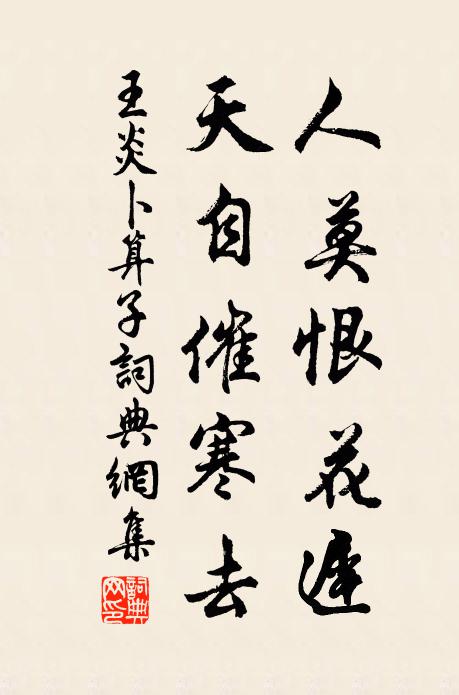 人莫恨花遲
天自催寒去
王炎卜算子詞典網集
詞典网印